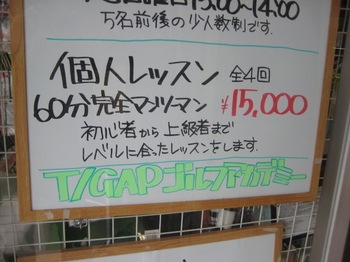 13:00~14:00
5名前後の少人数制です.
個人レッスン 全4回
60分完全マンツーマン ¥15,000
初心者から上級者まで
レベルに合ったレッスンをします.
T/GAPゴルフアカデミー